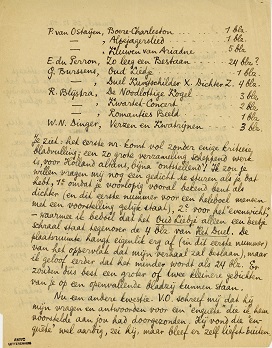 P. van Ostaijen, Boere-Charleston 1 blz.
— Alpejagerslied 1 blz.
— Kluwen van Ariadne 5 blz.
E. du Perron, Zo leeg een Bestaan 24 blz?
G. Burssens, Oud Liedje 1 blz.
— Duel Kunstschilder X. Dichter Z. 4 blz.
R. Blijstra, De Noodlottige Kogel 3 blz.
— Kwartet-Concert 2 blz.
— Romanties Beeld 1 blz.
W.N. Dinger, Verzen en Kwatrijnen 3 blz.
Je ziet: het eerste nr. komt vol zonder enige kritiese
bladvulling; een zo grote verzameling scheppend werk
is, voor Holland althans, bijna ontstellend! Ik zou je
willen vragen mij nog een gedicht te sturen als je dat
hebt, 1° omdat je voorlopig vooral bekend bent als
dichter (in dit eerste nummer voor een heleboel mensen
met een voorstelling gelijk staat), 2° voor het evenwicht,
waarmee ik bedoel dat het Oud Liedje alleen een beetje
schraal staat tegenover de 4 blz. van Het Duel. De
plaatsruimte hangt eigenlik erg af (in dit eerste nummer)
van het oppervlak dat mijn verhaal zal beslaan, maar
ik geloof zeker dat het minder wordt als 24 blz. Er
zouden dus best een groter of twee kleinere gedichten
van je op een openvallende bladzij kunnen staan.
Nu een andere kwestie. V.O. schreef mij dat hij
mijn vragen en antwoorden voor een enquête die ik hem
voorstelde aan jou had doorgezonden. Hij vond de "en-
quête" wel aardig, zei hij, maar bleef er zelf liefst buiten